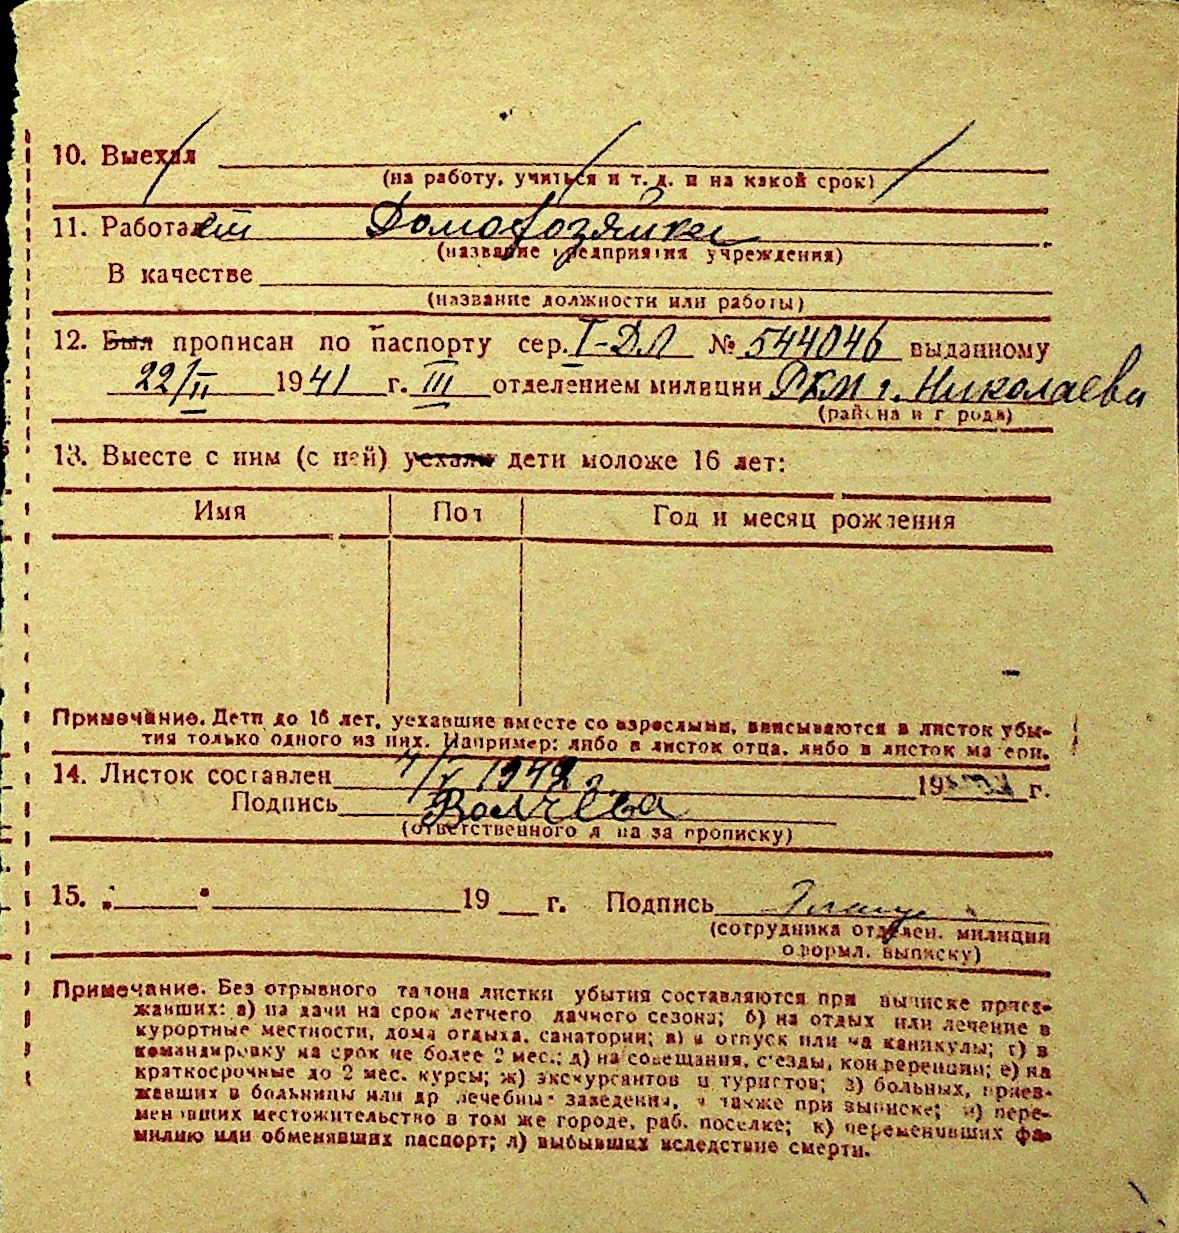 10. Выехал
(на работу, учиться и т. д. и на какой срок)
11. Работает Домохозяйка
(название предприятия учреждения)
В качестве
(название должности или работы)
12. Был прописан по паспорту сер. I-ДЛ № 544046 выданному
22/II 1941 г. III отделением милиции РКМ г. Николаева
(района и города)
13. Вместе с ним (с ней) уехали дети моложе 16 лет:
Имя Пол Год и месяц рождения
Примечание. Дети до 16 лет, уехавшие вместе со взрослыми, вписываются в листок убы-
тия только одного из них. Например: либо в листок отца, либо в листок матери.
14. Листок составлен 4/V 1942 19 г.
Подпись Волчева
(ответственного лица за прописку)
15. „ “ 19 г. Подпись
(сотрудника отделен. милиции
оформл. выписку)
Примечание. Без отрывного талона листки убытия составляются при выписке приез-
жавших: а) на дачи на срок летнего дачного сезона; б) на отдых или лечение в
курортные местности, дома отдыха, санатории; в) в отпуск или на каникулы; г) в
командировку на срок не более 2 мес.; д) на совещания, съезды, конференции; е) на
краткосрочные до 2 мес. курсы; ж) экскурсантов и туристов; з) больных, приез-
жавших в больницы или др лечебные заведения, а также при выписке; и) пере-
менивших местожительство в том же городе, раб. поселке; к) переменивших фа-
милию или обменявших паспорт; л) выбывших вследствие смерти.